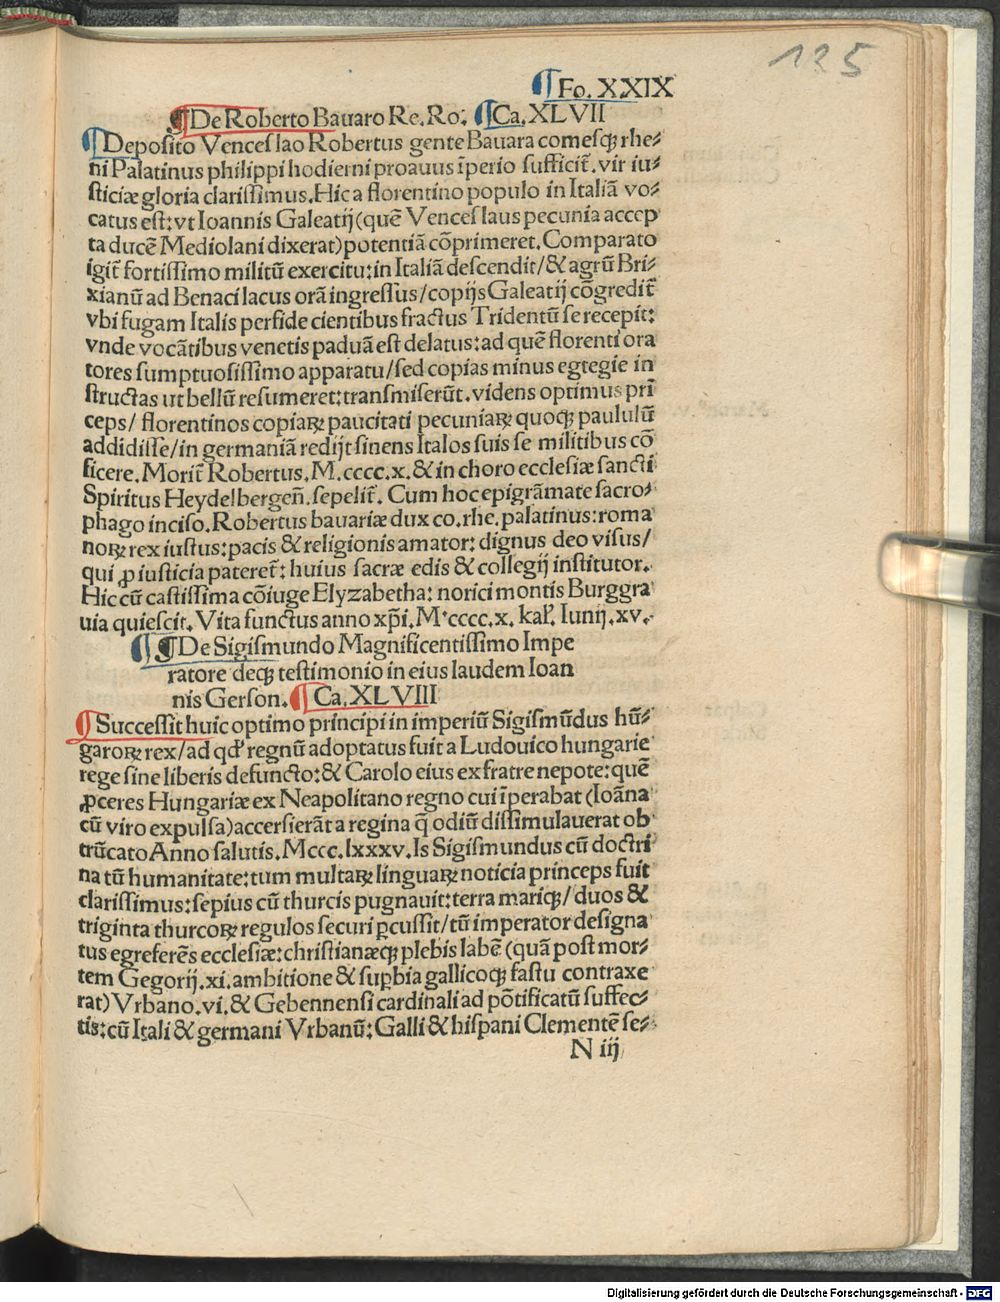 125
¶ Fo. XXIX
¶ De Roberto Bauaro Re. Ro: ¶ Ca. XLVII
¶ Deposito Venceslao Robertus gente Bauara comesqꝫ rhe⸗
ni Palatinus philippi hodierni proauus īperio sufficit᷑. vir iu⸗
sticiæ gloria clarissimus. Hic a florentino populo in Italiā vo⸗
catus est: vt Ioannis Galeatij (quē Venceslaus pecunia accep
ta ducē Mediolani dixerat) potentiā cōprimeret. Comparato
igit᷑ fortissimo militū exercitu: in Italiā descendit/ & agrū Bri⸗
xianū ad Benaci lacus orā ingressus/ copijs Galeatij cōgredit᷑
vbi fugam Italis perfide cientibus fractus Tridentū se recepit:
vnde vocātibus venetis paduā est delatus: ad quē florenti ora
tores sumptuosissimo apparatu/ sed copias minus egtegie in
structas ut bellū resumeret: transmiserūt. videns optimus pri
ceps/ florentinos copiaꝝ paucitati pecuniaꝝ quoqꝫ paululū
addidisse/ in germaniā redijt sinens Italos suis se militibus cō
ficere. Morit᷑ Robertus. M. cccc. x. & in choro ecclesiæ sancti
Spiritus Heydelbergen̄. sepelit᷑. Cum hoc epigrāmate sacro⸗
phago inciso. Robertus bauariæ dux co. rhe. palatinus: roma
noꝝ rex iustus: pacis & religionis amator: dignus deo visus/
qui ꝓ iusticia pateret᷑: huius sacræ edis & collegij institutor.
Hic cū castissima cōiuge Elyzabetha: norici montis Burggra
uia quiescit. Vita functus anno xp̄i. M. cccc. x. kal̄. Iunij. xv.
¶ ¶ De Sigismundo Magnificentissimo Impe
ratore deqꝫ testimonio in eius laudem Ioan
nis Gerson. ¶ Ca. XLVIII
¶ Successit huic optimo principi in imperiū Sigismūdus hū⸗
garoꝝ rex/ ad qd̄ regnū adoptatus fuit a Ludouico hungarie
rege sine liberis defuncto: & Carolo eius ex fratre nepote: quē
ꝓceres Hungariæ ex Neapolitano regno cui īperabat (Ioāna
cū viro expulsa) accersierāt a regina q̄ odiū dissimulauerat ob
trūcato Anno salutis. Mccc. lxxxv. Is Sigismundus cū doctri
na tū humanitate: tum multaꝝ linguaꝝ noticia princeps fuit
clarissimus: sepius cū thurcis pugnauit: terra mariqꝫ/ duos &
triginta thurcoꝝ regulos securi ꝑcussit/ tū imperator designa
tus egreferēs ecclesiæ: christianæqꝫ plebis labē (quā post mor⸗
tem Gegorij. xi. ambitione & suꝑbia gallicoqꝫ fastu contraxe
rat) Vrbano. vi. & Gebennensi cardinali ad pōtificatū suffec⸗
tis: cū Itali & germani Vrbanū: Galli & hispani Clementē se⸗
N iij
Digitalisierung gefördert durch die Deutsche Forschungsgemeinschaft - DFG